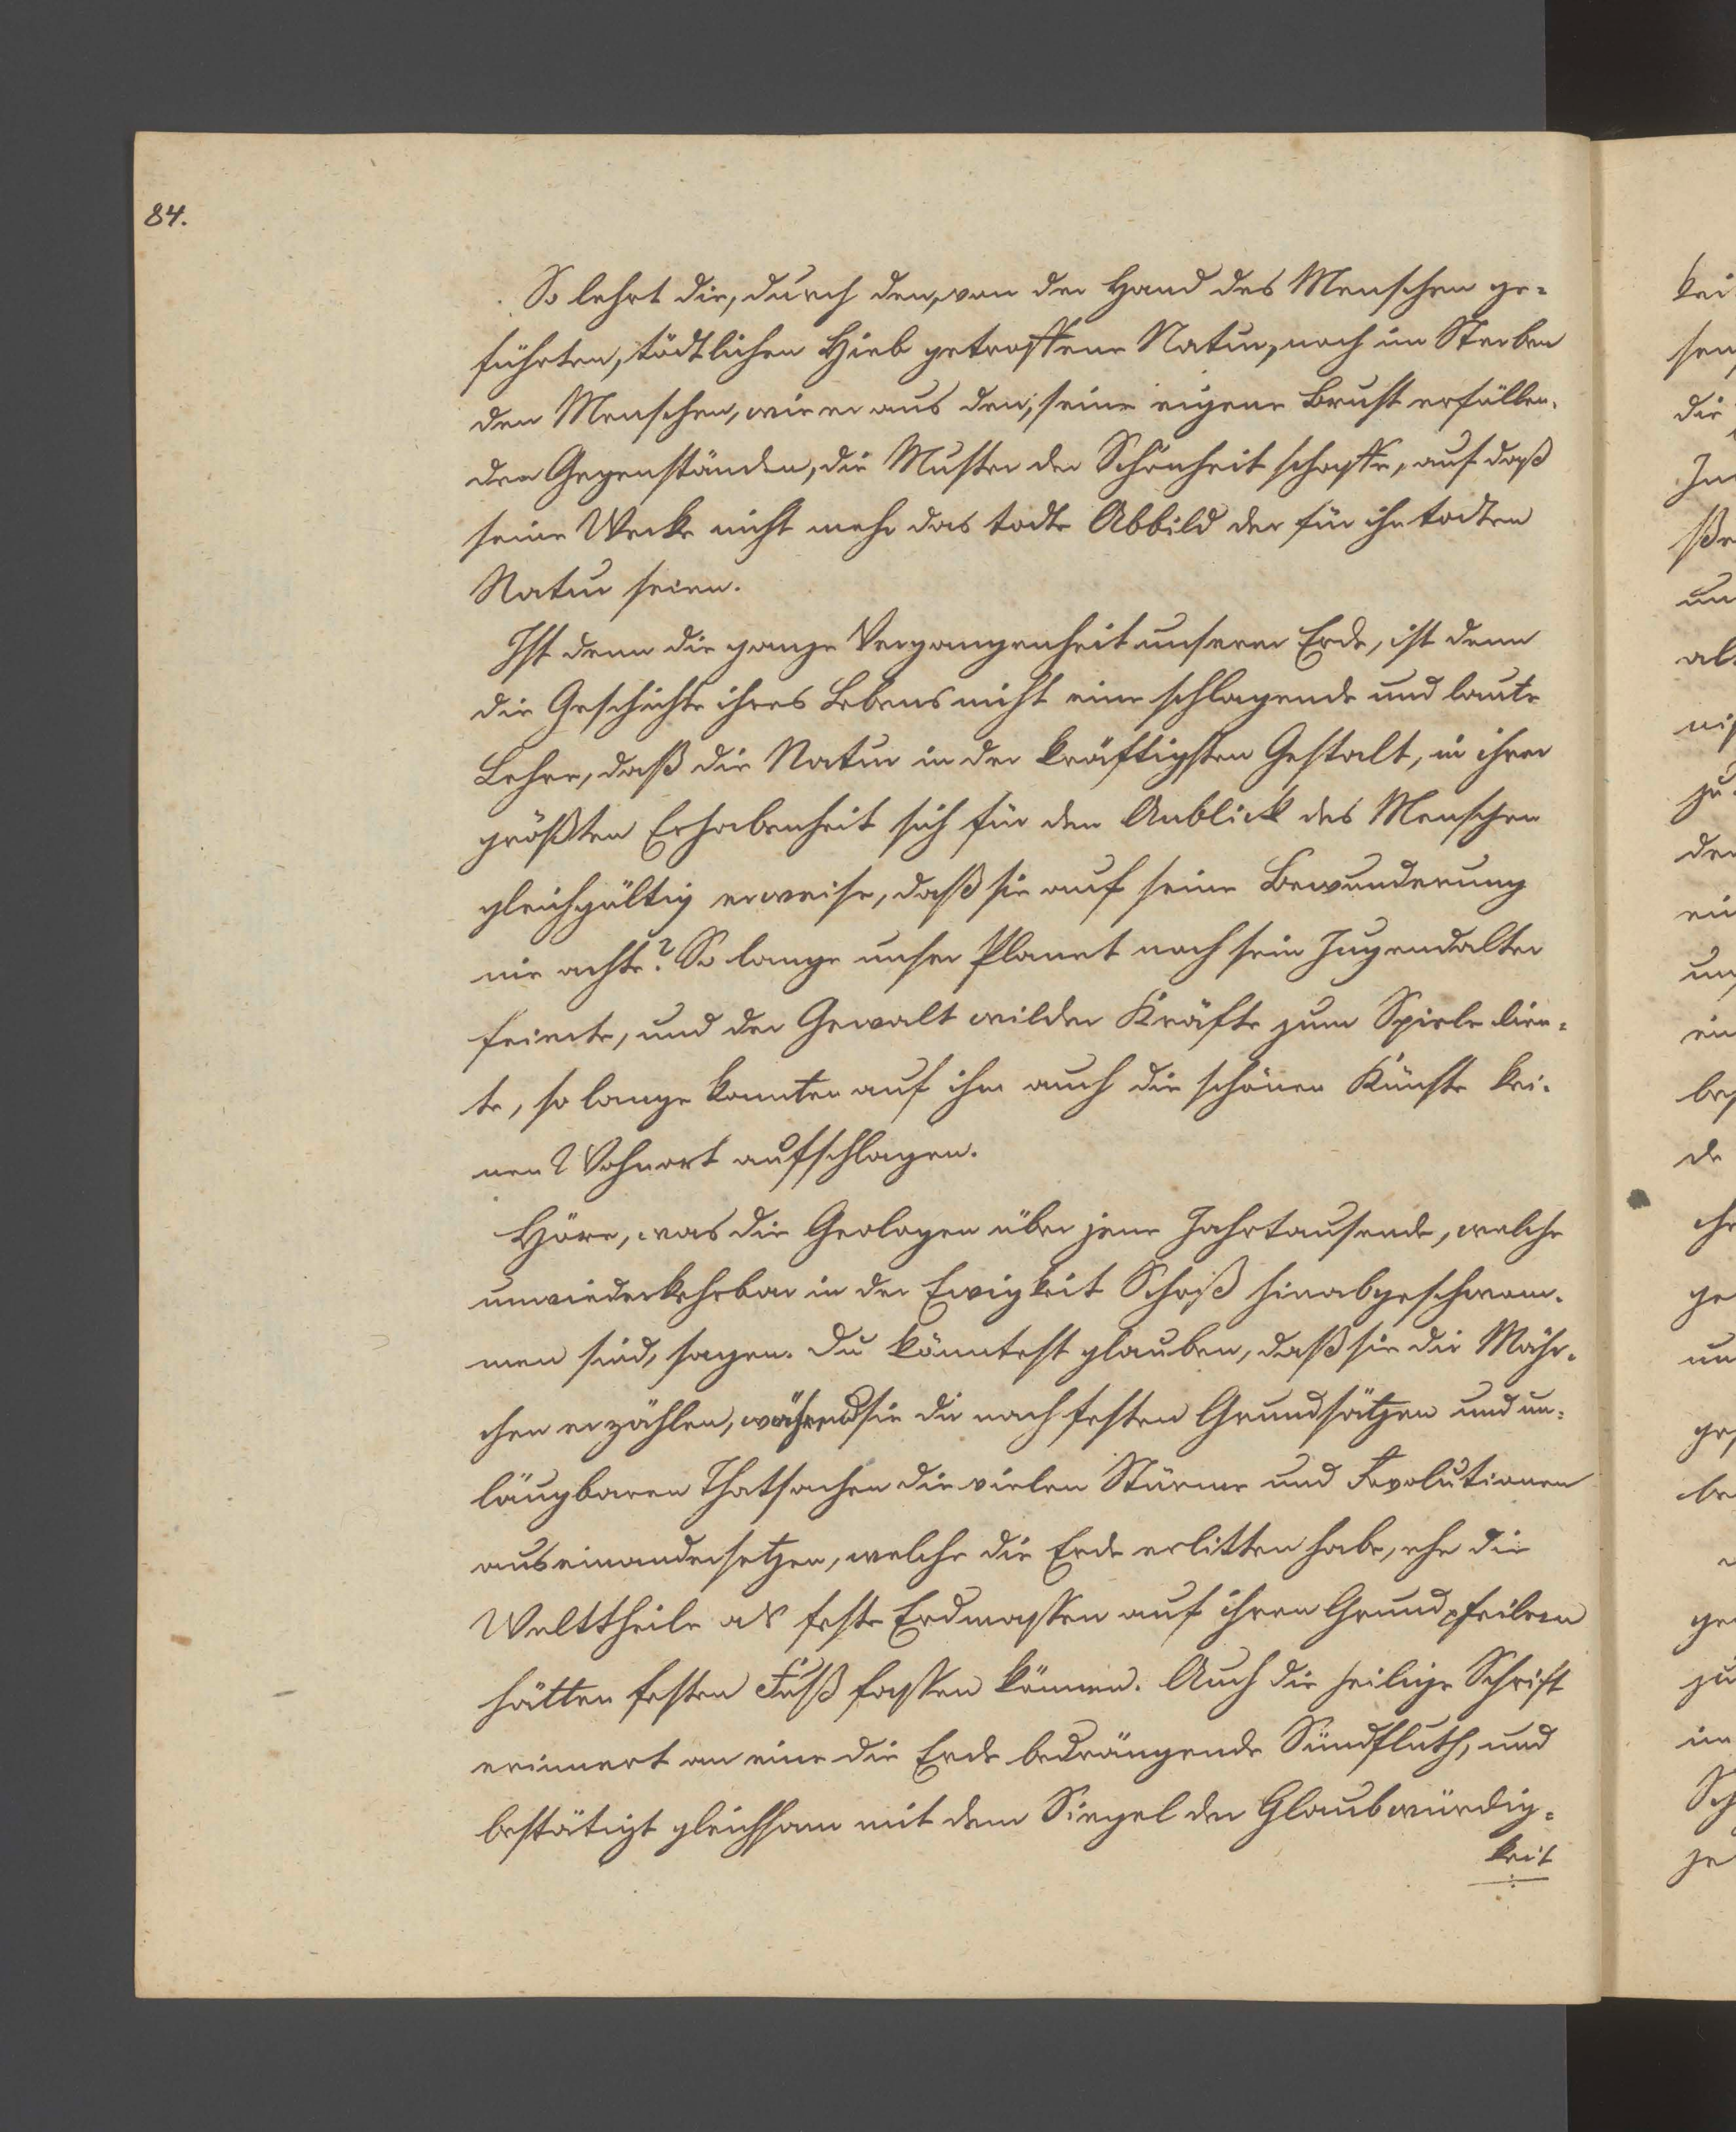 84.
So lehrt die, durch den, von der Hand des Menschen ge-
führten, tödtlichen Hieb getroffene Natur, noch im Sterben
den Menschen, wie er aus den, seine eigene Brust erfüllen-
den Gegenständen, die Muster der Schönheit schaffe, auf daß
seine Werke nicht mehr das todte Abbild der für ihn todten
Natur seien.
Ist denn die ganze Vergangenheit unserer Erde, ist denn
die Geschichte ihres Lebens nicht eine schlagende und laute
Lehre, daß die Natur in der kräftigsten Gestalt, in ihrer
größten Erhabenheit sich für den Anblick des Menschen
gleichgültig erweise, daß sie auf seine Bewunderung
nie achte? So lange unser Planet noch sein Jugendalter
feierte, und der Gewalt wilder Kräfte zum Spiele dien-
te, so lange konnten auf ihm auch die schönen Künste kei-
nen Wohnort aufschlagen.
Höre, was die Geologen über jene Jahrtausende, welche
unwiederkehrbar in der Ewigkeit Schoß hinabgeschwom-
men sind, sagen. Du könntest glauben, daß sie dir Mähr-
chen erzählen, während sie dir nach festen Grundsätzen und un-
läugbaren Thatsachen die vielen Stürme und Revolutionen
auseinandersetzen, welche die Erde erlitten habe, ehe die
Welttheile als feste Erdmassen auf ihren Grundpfeilern
hätten festen Fuß fassen können. Auch die heilige Schrift
erinnert an eine die Erde bedrängende Sündfluth, und
bestätigt gleichsam mit dem Siegel der Glaubwürdig-
keit